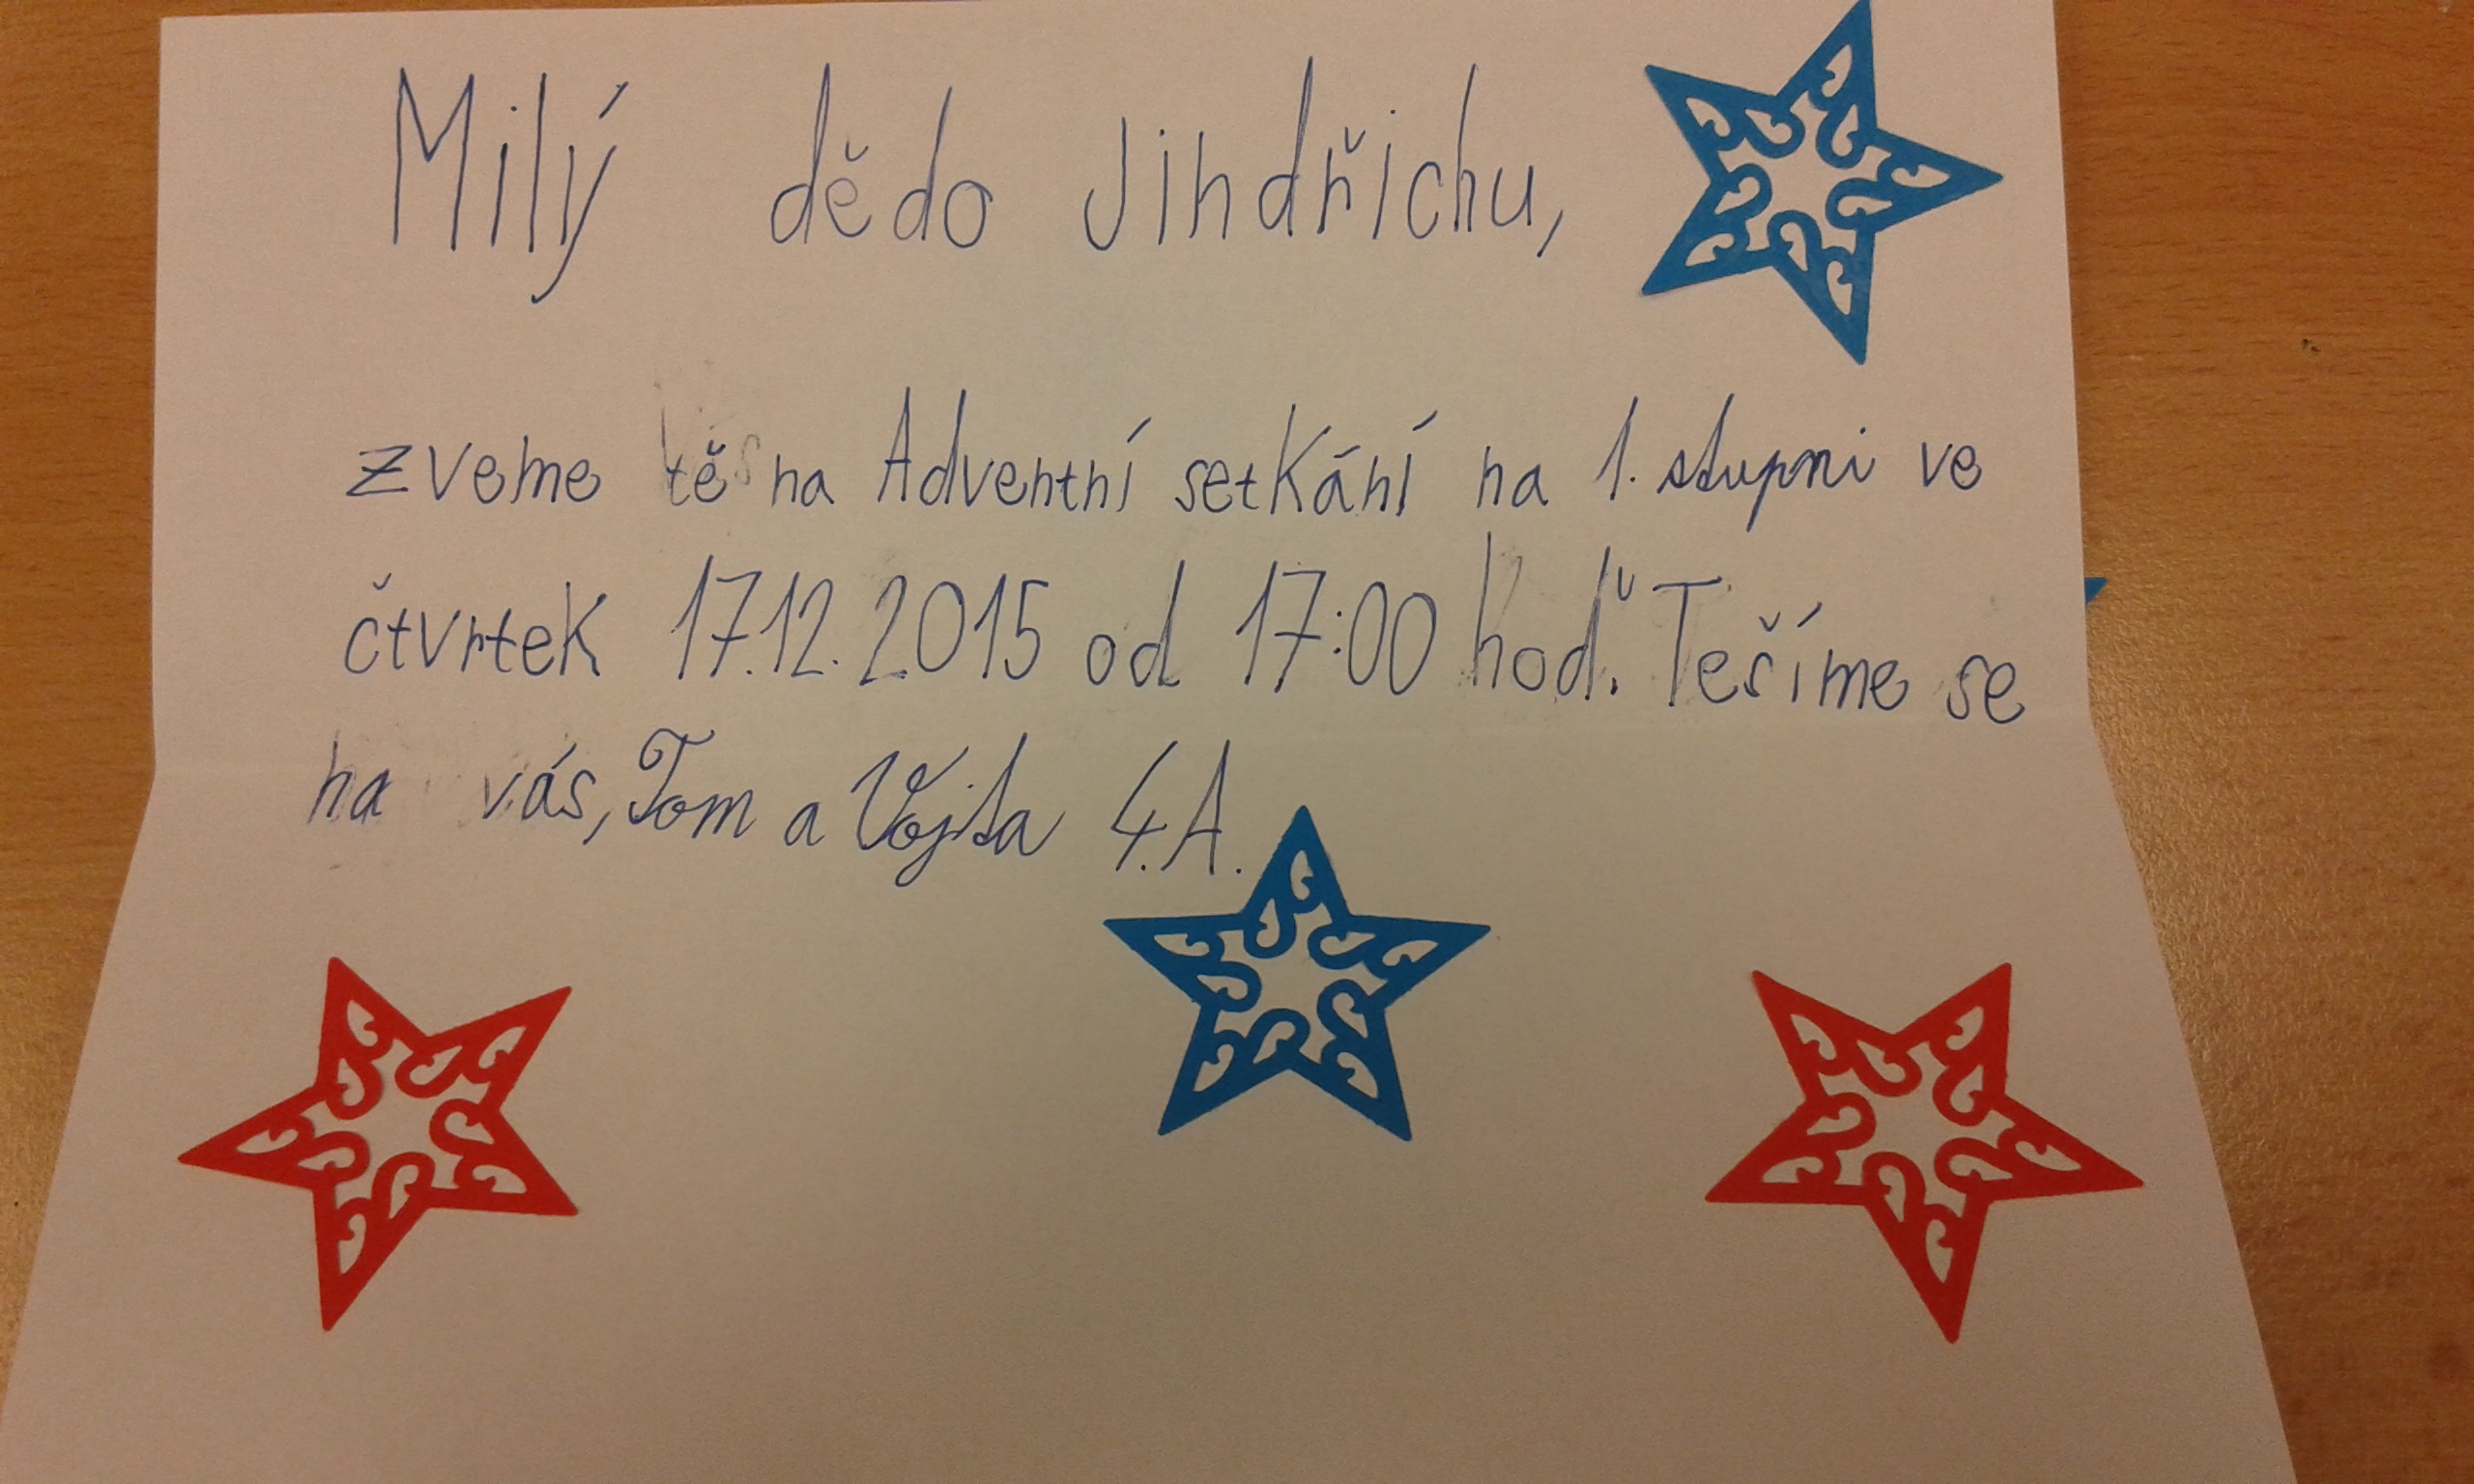 Milý dědo Jindřichu,
zveme tě na Adventní setkání na 1. stupni ve
čtvrtek 17.12. 2015 od 17:00 hod. Tešíme se
na vás, Tom a Vojta 4.A.